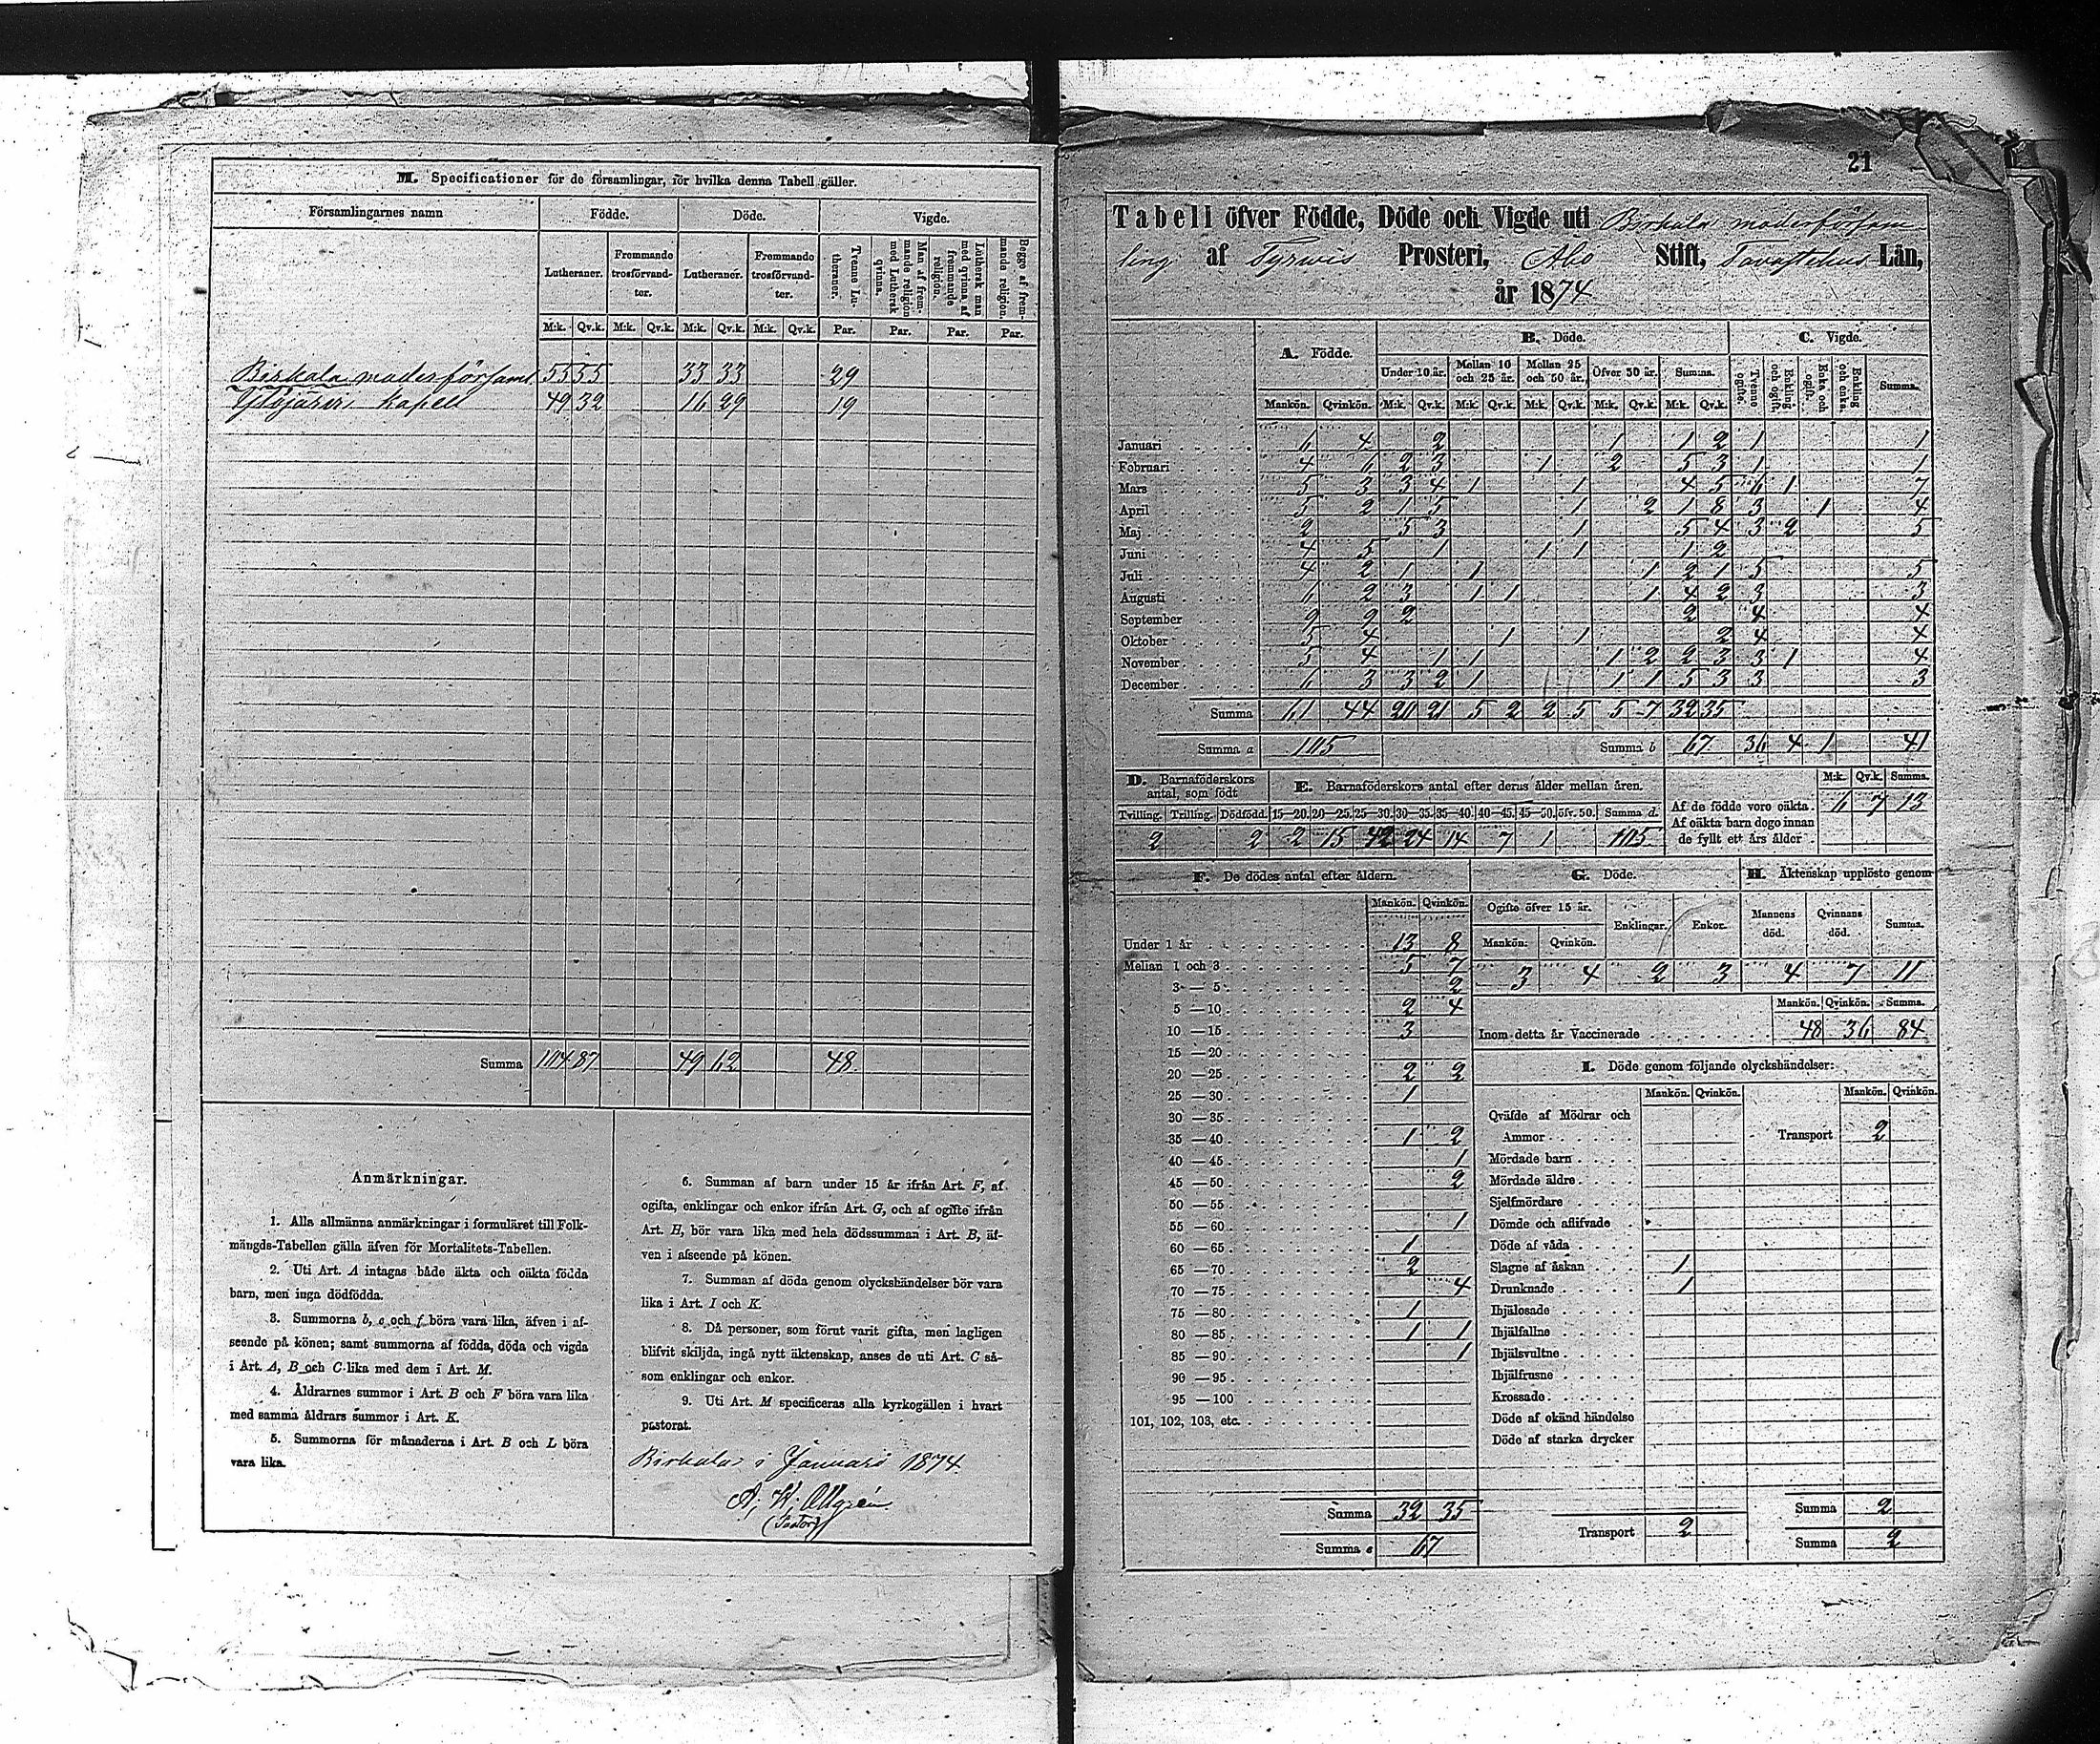 M. Specificationer för de församlingar, för hvilka denna Tabell gäller.
Församlingarnes namn Födde. Döde. Vigde.
Lutheraner. Fremmande trosförvandter. Lutheraner. Fremmande trosförvandter. Tvenne Lutheraner. Man af fremmande religion med Luthersk qvinna. Luthersk man med qvinna af fremmande religion. Begge af fremmande religion.
M:k. Qv.k. M:k. Qv.k. M:k. Qv.k. M:k. Qv.k. Par. Par. Par. Par.
Birkala moderförsaml. 55 55 33 33 29
Ylöjärvi kapell 49 32 16 29 19
Summa 104 87 49 62 48
Anmärkningar.
1. Alla allmänna anmärkningar i formuläret till Folk-
mängds-Tabellen gälla äfven för Mortalitets-Tabellen.
2. Uti Art. A intagas både äkta och oäkta födda
barn, men inga dödfödda.
3. Summorna b, e och f böra vara lika, äfven i af-
seende på könen; samt summorna af födda, döda och vigda
i Art. A, B och C lika med dem i Art. M.
4. Åldrarnes summor i Art. B och F böra vara lika
med samma åldrars summor i Art. K.
5. Summorna för månaderna i Art. B och L böra
vara lika.
6. Summan af barn under 15 år ifrån Art. F, af
ogifta, enklingar och enkor ifrån Art. G, och af ogifte ifrån
Art. H, bör vara lika med hela dödssumman i Art. B, äf-
ven i afseende på könen.
7. Summan af döda genom olyckshändelser bör vara
lika i Art. I och K.
8. Då personer, som förut varit gifta, men lagligen
blifvit skiljda, ingå nytt äktenskap, anses de uti Art. C så-
som enklingar och enkor.
9. Uti Art. M specificeras alla kyrkogällen i hvart
pastorat.
Birkala i Januari 1874.
A. W. Ollgrén
(Pastor)
21
Tabell öfver Födde, Döde och Vigde uti Birkala moderförsam
ling af Tyrvis Prosteri, Åbo Stift, Tavastehus Län,
år 1874
A. Födde. B. Döde. C. Vigde.
Under 10 år. Mellan 10 och 25 år. Mellan 25 och 50 år. Öfver 50 år. Summa. Tvenne ogifte. Enkling och ogift. Enka och ogift. Enkling och enka. Summa.
Mankön. Qvinkön. M:k. Qv.k. M:k. Qv.k. M:k. Qv.k. M:k. Qv.k. M:k. Qv.k.
Januari 6 4 2 1 1 2 1 1
Februari 4 6 2 3 1 2 5 3 1 1
Mars 5 3 3 4 1 1 4 5 6 1 7
April 5 2 1 5 1 2 1 8 3 1 4
Maj 2 5 3 1 5 4 3 2 5
Juni 4 5 1 1 1 1 2
Juli 4 2 1 1 1 2 1 5 5
Augusti 6 2 3 1 1 1 4 2 3 3
September 9 9 2 2 4 4
Oktober 5 4 1 1 2 4 4
November 5 4 1 1 1 2 2 3 3 1 4
December 6 3 3 2 1 1 1 5 3 3 3
Summa 61 44 20 21 5 2 2 5 5 7 32 35
Summa a 105 Summa b 67 36 4 1 41
D. Barnaföderskors antal, som födt
Tvilling. Trilling. Dödfödd.
2 2
E. Barnaföderskors antal efter deras ålder mellan åren.
15—20. 20—25. 25—30. 30—35. 35—40. 40—45. 45—50. öfv. 50. Summa d.
2 15 42 24 14 7 1 105
M:k. Qv.k. Summa.
Af de födde voro oäkta 6 7 13
Af oäkta barn dogo innan
de fyllt ett års ålder
F. De dödes antal efter åldern.
Mankön. Qvinkön.
Under 1 år 13 8
Mellan 1 och 3 5 7
3 — 5 2
5 — 10 2 4
10 — 15 3
15 — 20
20 — 25 2 2
25 — 30 1
30 — 35
35 — 40 1 2
40 — 45 1
45 — 50 2
50 — 55
55 — 60 1
60 — 65 1
65 — 70 2
70 — 75 4
75 — 80 1
80 — 85 1 1
85 — 90 1
90 — 95
95 — 100
101, 102, 103, etc.
Summa 32 35
Summa e 67
G. Döde.
Ogifte öfver 15 år. Enklingar. Enkor.
Mankön. Qvinkön.
3 4 2 3
H. Äktenskap upplösta genom
Mannens död. Qvinnans död. Summa.
4 7 11
Mankön. Qvinkön. Summa.
Inom detta år Vaccinerade 48 36 84
I. Döde genom följande olyckshändelser:
Mankön. Qvinkön. Mankön. Qvinkön.
Qväfde af Mödrar och
Ammor Transport 2
Mördade barn
Mördade äldre
Sjelfmördare
Dömde och aflifvade
Döde af våda
Slagne af åskan 1
Drunknade 1
Ihjälosade
Ihjälfallne
Ihjälsvultne
Ihjälfrusne
Krossade
Döde af okänd händelse
Döde af starka drycker
Summa 2
Transport 2 Summa 2